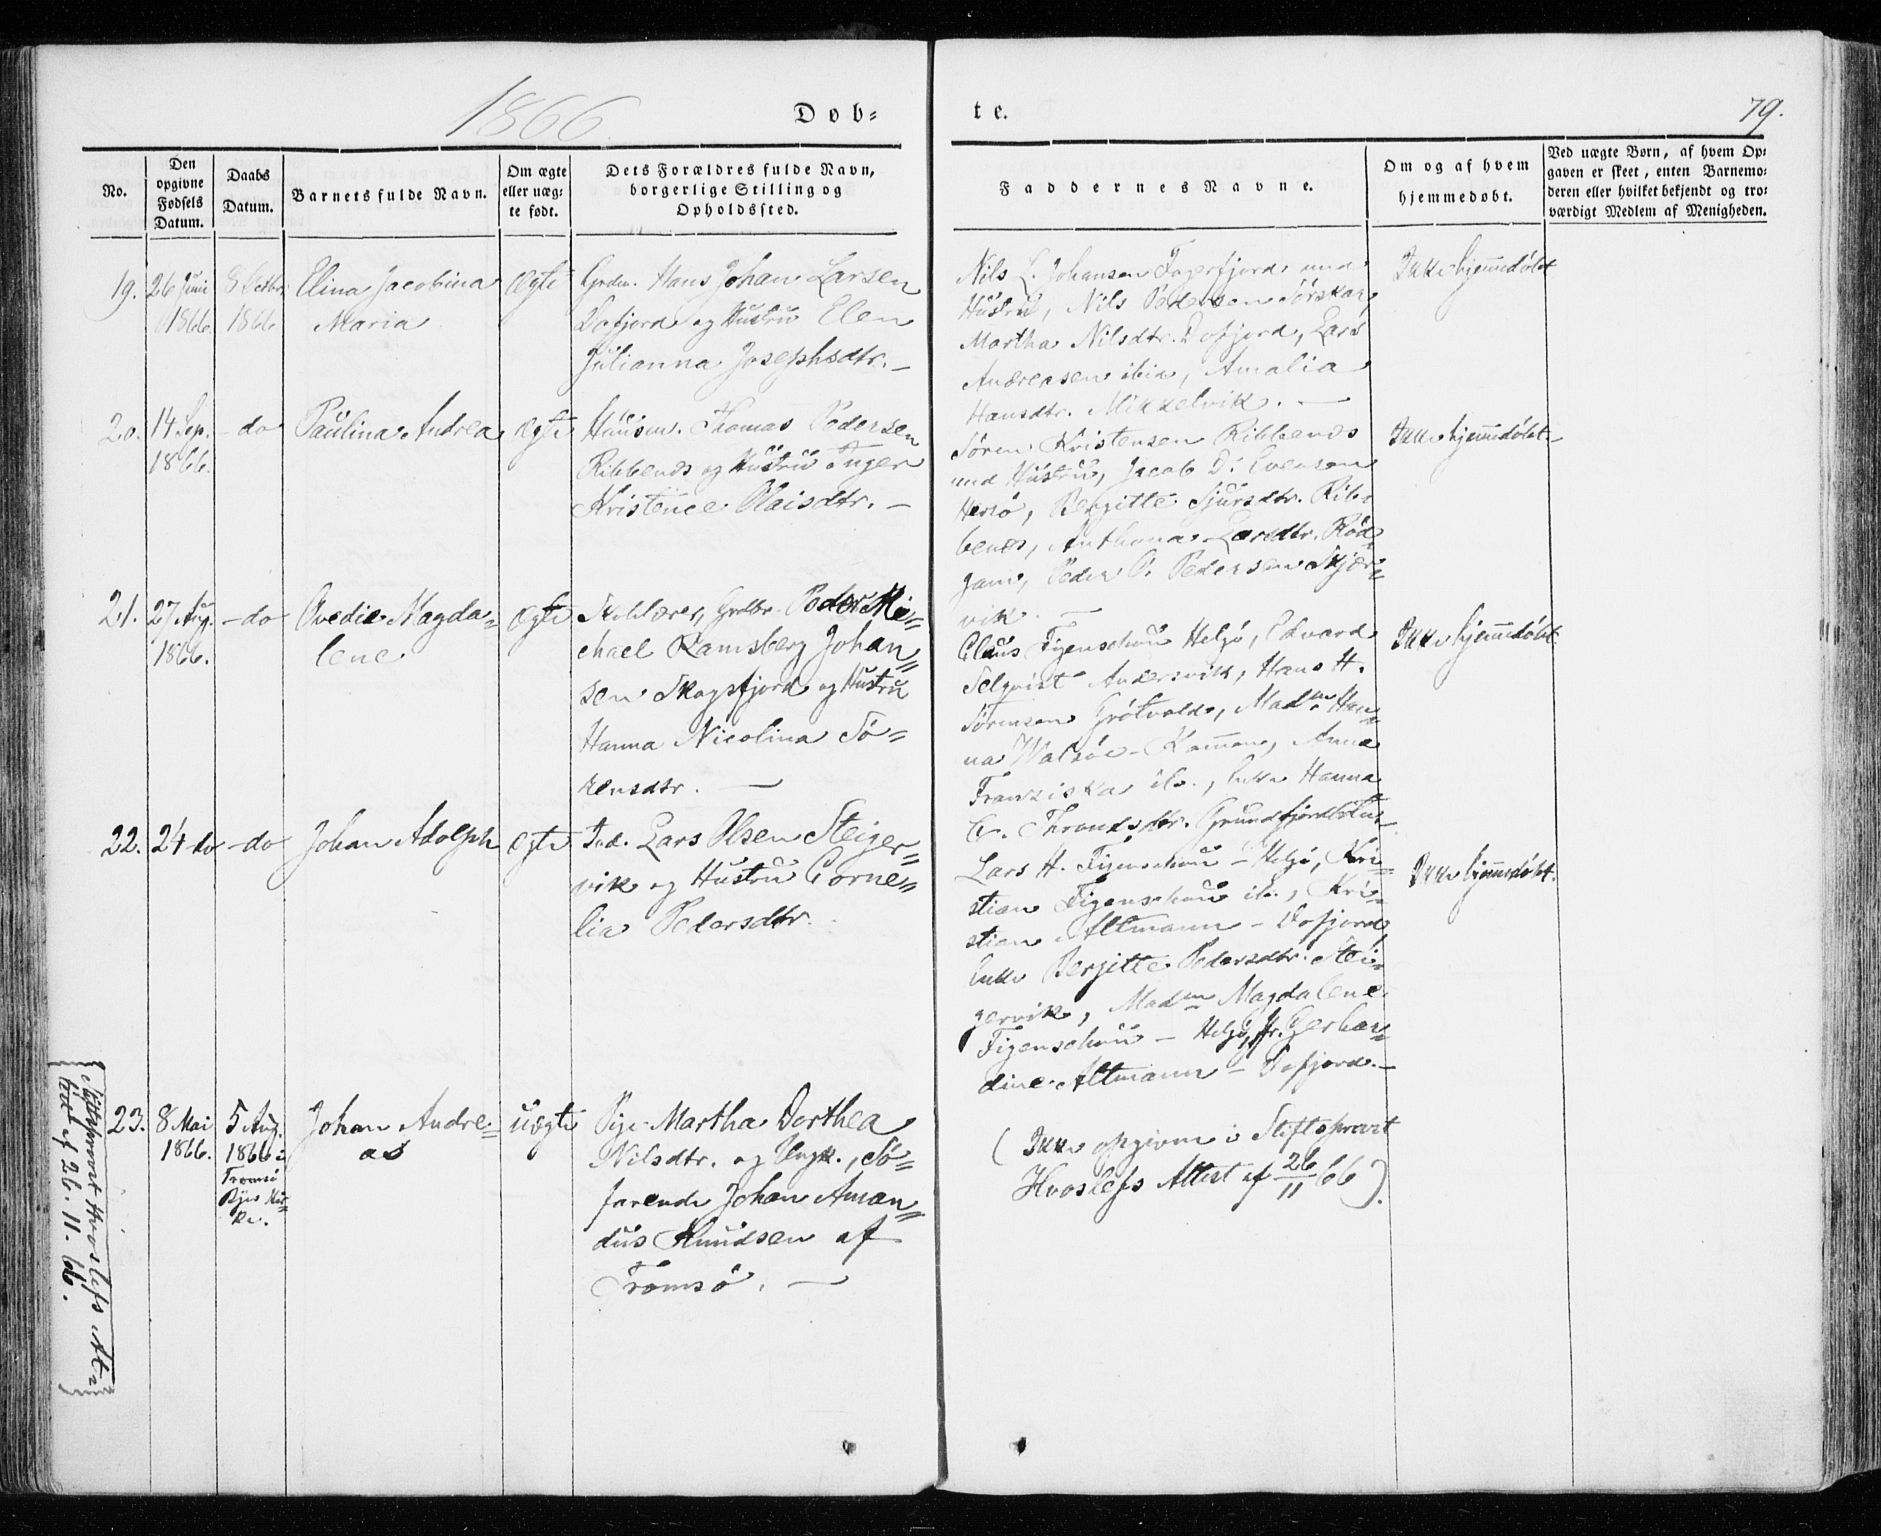 1866.
Døb-
te.
79.
No.
Den opgivne Fødsels Datum.
Daabs Datum.
Barnets fulde Navn.
Om ægte eller uæg-te født.
Dets Forældres fulde Navn, borgerlige Stilling og Opholdssted.
Faddernes Navne.
Om og af hvem hjemmedøbt.
Ved uægte Børn, af hvem Op-gaven er skeet, enten Barnemo-deren eller hvilket bekjendt og tro-værdigt Medlem af Menigheden.
19. 26 Juni 8 Octbr. Elina Jacobina Ægte Hans Johan Larsen
1866. 1866 Maria Dofjord og Hustru Elen
Julianna Josephsdtr. –
Nils L. Johansen Fagerfjord med
Hustru, Nils Pedersen Sørskar,
Martha Nilsdtr. Dofjord, Lars
Andreasen ibid, Amalia
Hansdtr. Mikkelvik. –
Ikke hjemmedøbt
20. 14 Sep. – do Paulina Andrea Ægte Husm. Thomas Pedersen
1866. Ribbenæs og Hustru Inger
Kristence Olaisdtr. –
Søren Kristensen Ribbenæs
med Hustru, Jacob D. Evensen
Hersø, Bergitte Sjursdtr. Rib-
benæs, Anthona Larsdtr. Rød-
gam, Peder P. Pedersen Skjær-
vik. –
Ikke hjemmedøbt –
21. 27 Aug. – do Ovedie Magda= Ægte Peder Mi=
1866. lene chael Ramsberg Johan=
sen Skogsfjord og Hustru
Hanna Nicolina Sø=
rensdtr. –
Claus Figenschou Helgø, Edvard
Selqvist Andersvik, Hans H.
Sørensen Grøtvold, Madm Han=
na Walsøe – Kammen, Anna
Franziska ib., Enke Hanna
Throndsdtr.
Ikke hjemmedøbt.
22. 24 do – do Johan Adolph Ægte Ind. Lars Olsen Steiger=
vik og Hustru Corne=
lia Pedersdtr.
Lars H. Figenschou – Helgø, Kri=
stian Figenschou ib., Kri=
stian Altmann – Dofjord,
Enke Bergitte Pedersdtr. Stei=
gervik, Madm Magdalene
Figenschou – Helgø, Gerhar=
dine Altmann – Dofjord. –
Ikke hjemmedøbt.
23. 8 Mai 5 Aug. Johan Andre= uægte Pige Martha Dorthea
1866. 1866 i as Nilsdtr. og Ungk., Sø=
Tromsø farende Johan Aman=
Byes Kir= dus Knudsen af
ke. Tromsø. –
(Ikke opgivne i Stiftsprovst
Hvoslefs Attest af 26/11 66).
Stiftsprovst Hvoslefs At=
test af 26. 11. 66.